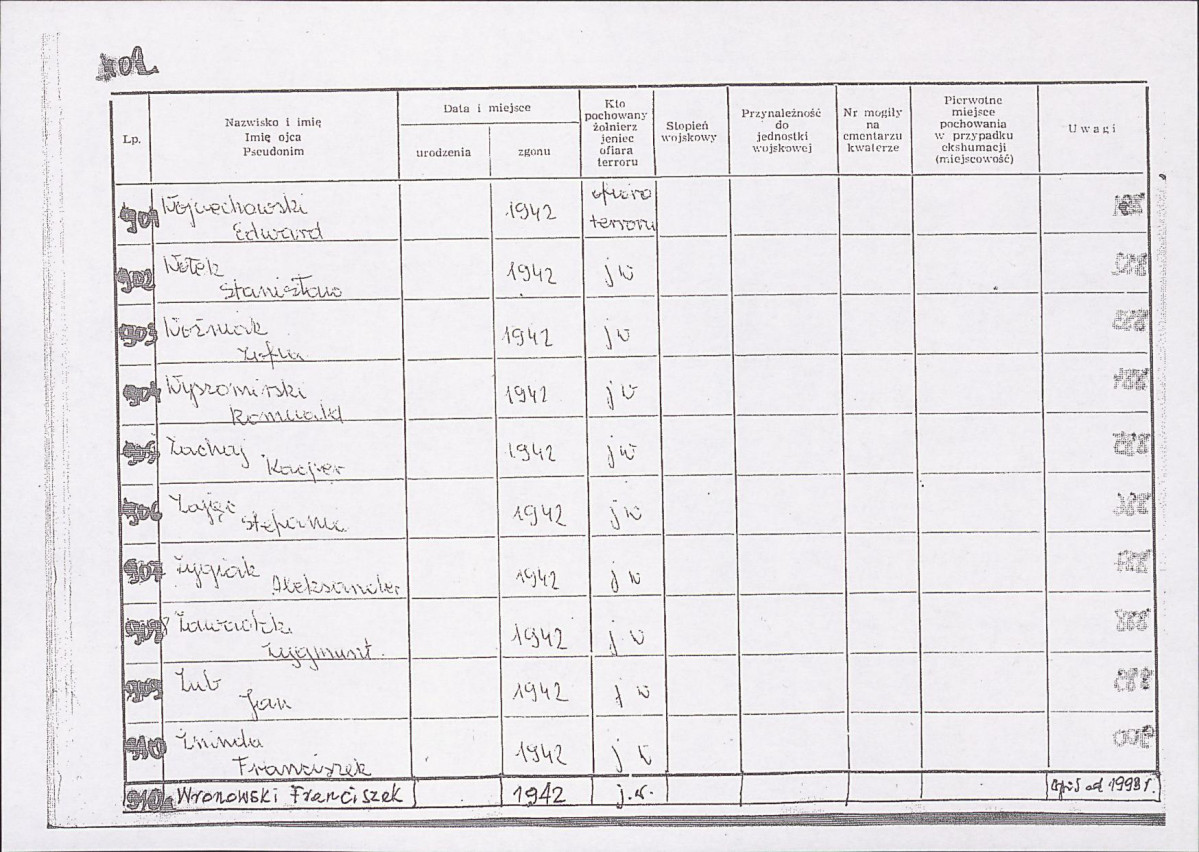 Lp.
Nazwisko i imię
Imię ojca
Pseudonim
Data i miejsce
urodzenia
zgonu
Kto
pochowany
żołnierz
jeniec
ofiara
terroru
Stopień
wojskowy
Przynależność
do
jednostki
wojskowej
Nr mogiły
na
cmentarzu
kwaterze
Pierwotne
miejsce
pochowania
w przypadku
ekshumacji
(miejscowość)
Uwagi
901 Wojciechowski 1942 ofiara
Edward terroru
902 1942 jw
Stanisław
903 Woźniak 1942 jw
Zofia
904 Wyszomirski 1942 jw
Romuald
905 Zachaj 1942 jw
Kacper
906 Zając 1942 jw
Stefania
907 1942 jw
Aleksander
908 Zawadzki 1942 jw
Zygmunt
909 Zub 1942 jw
Jan
910 1942 jw
Franciszek
910a Wronowski Franciszek 1942 j.w. 1998 r.